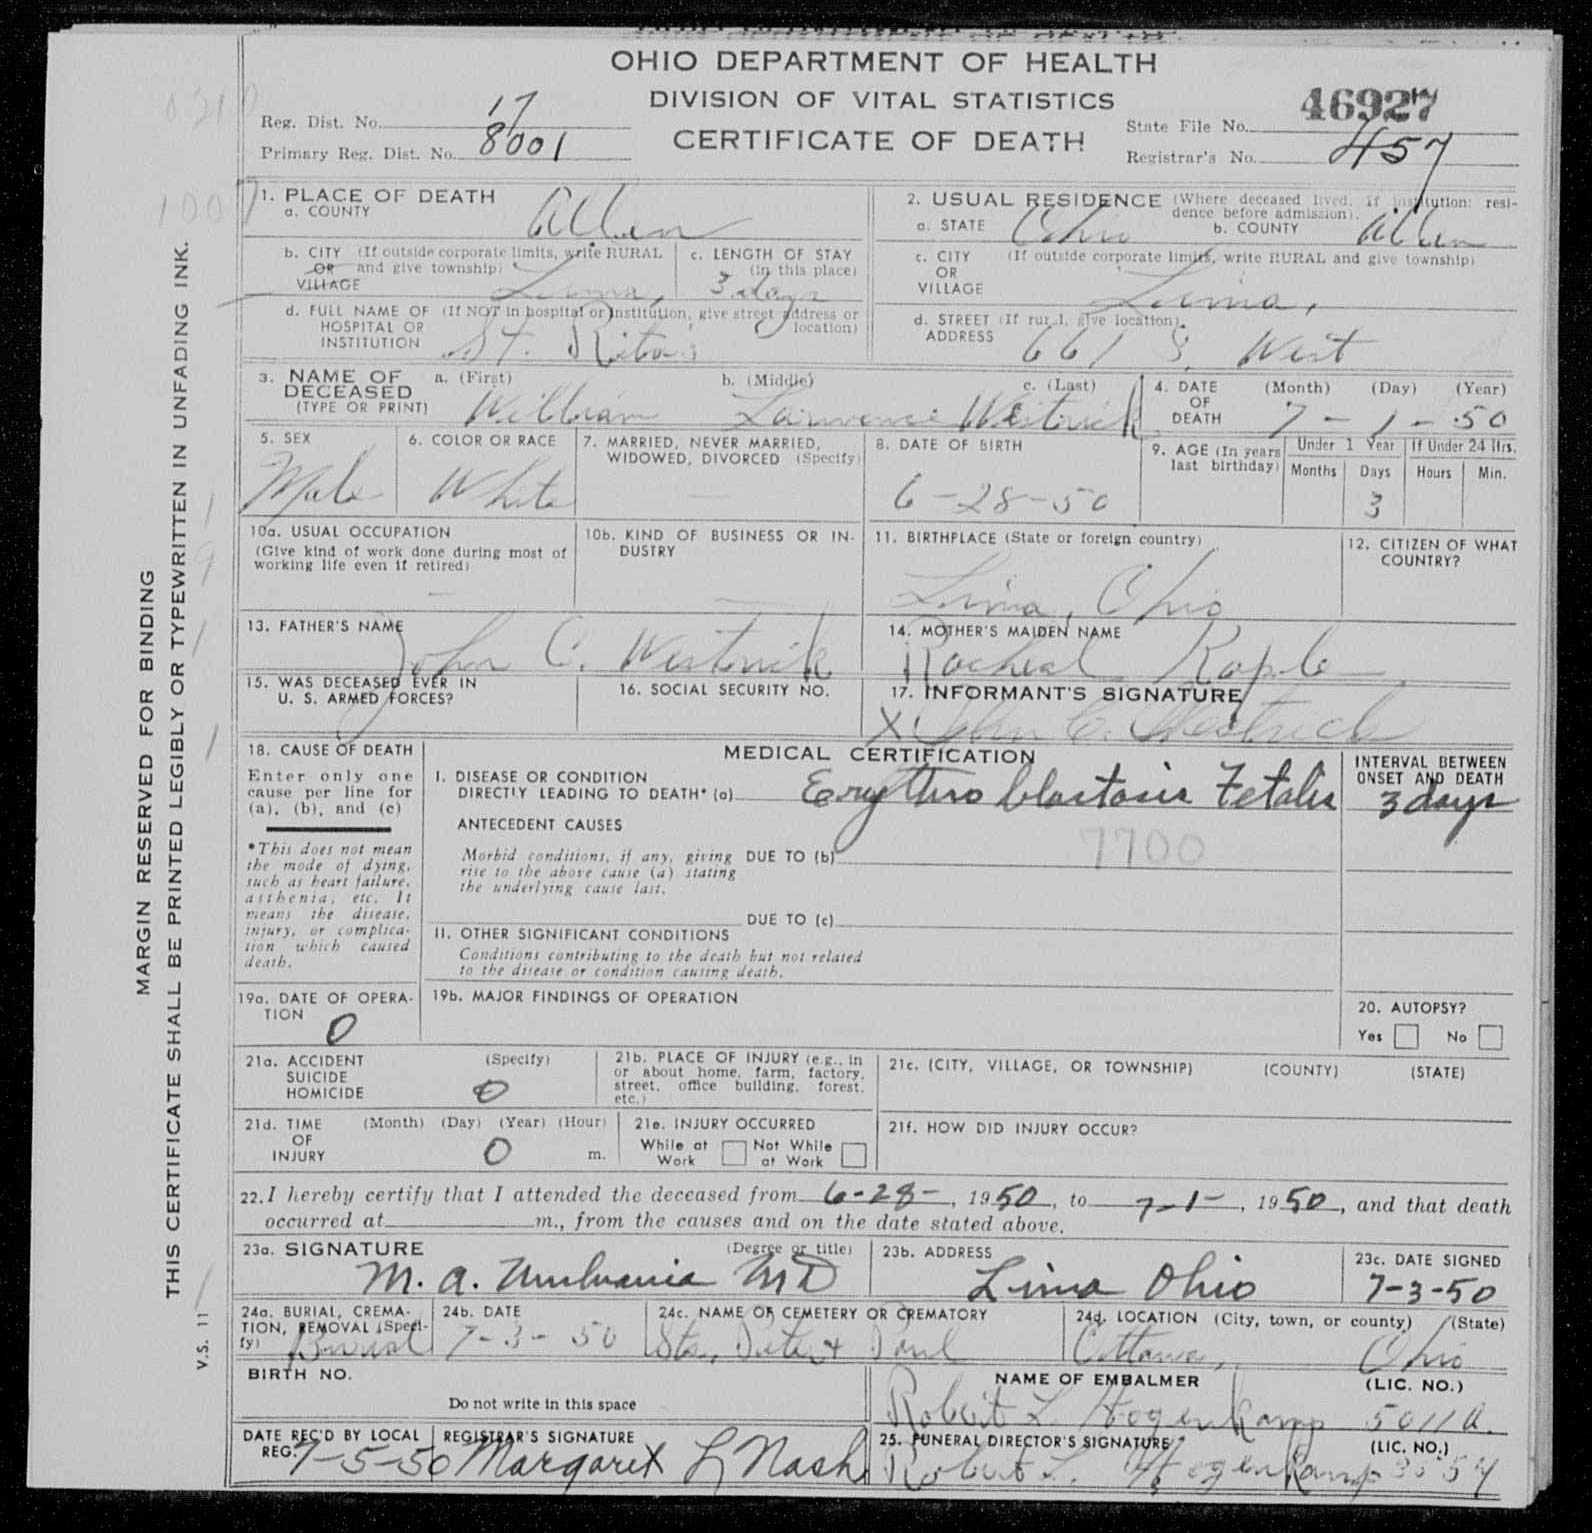 OHIO DEPARTMENT OF HEALTH
DIVISION OF VITAL STATISTICS
CERTIFICATE OF DEATH
Reg. Dist. No. 17
Primary Reg. Dist. No. 8001
46927
State File No.
Registrar's No. 457
MARGIN RESERVED FOR BINDING
THIS CERTIFICATE SHALL BE PRINTED LEGIBLY OR TYPEWRITTEN IN UNFADING INK.
V.S. 11
1. PLACE OF DEATH
a. COUNTY Allen
b. CITY (If outside corporate limits, write RURAL
OR and give township)
VILLAGE Lima,
c. LENGTH OF STAY
(in this place)
3 days
d. FULL NAME OF (If NOT in hospital or institution, give street address or
HOSPITAL OR location)
INSTITUTION St. Rita's
2. USUAL RESIDENCE (Where deceased lived. If institution: resi-
dence before admission).
a. STATE Ohio b. COUNTY Allen
c. CITY (If outside corporate limits, write RURAL and give township)
OR
VILLAGE Lima,
d. STREET (If rural, give location)
ADDRESS 661 S. West
3. NAME OF a. (First) b. (Middle) c. (Last)
DECEASED
(TYPE OR PRINT) William Lawrence Westrick
4. DATE (Month) (Day) (Year)
OF
DEATH 7 - 1 - 50
5. SEX
Male
6. COLOR OR RACE
White
7. MARRIED, NEVER MARRIED,
WIDOWED, DIVORCED (Specify)
—
8. DATE OF BIRTH
6-28-50
9. AGE (In years
last birthday)
Under 1 Year If Under 24 Hrs.
Months Days Hours Min.
3
10a. USUAL OCCUPATION
(Give kind of work done during most of
working life even if retired)
—
10b. KIND OF BUSINESS OR IN-
DUSTRY
—
11. BIRTHPLACE (State or foreign country)
Lima, Ohio
12. CITIZEN OF WHAT
COUNTRY?
13. FATHER'S NAME
John C. Westrick
14. MOTHER'S MAIDEN NAME
Racheal Kaple
15. WAS DECEASED EVER IN
U. S. ARMED FORCES?
16. SOCIAL SECURITY NO.
17. INFORMANT'S SIGNATURE
X John C. Westrick
18. CAUSE OF DEATH
Enter only one
cause per line for
(a), (b), and (c)
*This does not mean
the mode of dying,
such as heart failure,
asthenia, etc. It
means the disease,
injury, or complica-
tion which caused
death.
MEDICAL CERTIFICATION
I. DISEASE OR CONDITION
DIRECTLY LEADING TO DEATH* (a) Erythro blastosis Fetalis
INTERVAL BETWEEN
ONSET AND DEATH
3 days
ANTECEDENT CAUSES
7700
Morbid conditions, if any, giving DUE TO (b)
rise to the above cause (a) stating
the underlying cause last.
DUE TO (c)
II. OTHER SIGNIFICANT CONDITIONS
Conditions contributing to the death but not related
to the disease or condition causing death.
19a. DATE OF OPERA-
TION
0
19b. MAJOR FINDINGS OF OPERATION
20. AUTOPSY?
Yes No
21a. ACCIDENT (Specify)
SUICIDE
HOMICIDE 0
21b. PLACE OF INJURY (e.g., in
or about home, farm, factory,
street, office building, forest,
etc.)
21c. (CITY, VILLAGE, OR TOWNSHIP) (COUNTY) (STATE)
21d. TIME (Month) (Day) (Year) (Hour)
OF
INJURY 0 m.
21e. INJURY OCCURRED
While at Not While
Work at Work
21f. HOW DID INJURY OCCUR?
22. I hereby certify that I attended the deceased from 6-28-, 1950, to 7-1-, 1950, and that death
occurred at m., from the causes and on the date stated above.
23a. SIGNATURE (Degree or title)
M. A. Mulvania MD
23b. ADDRESS
Lima Ohio
23c. DATE SIGNED
7-3-50
24a. BURIAL, CREMA-
TION, REMOVAL (Speci-
fy) Burial
24b. DATE
7-3-50
24c. NAME OF CEMETERY OR CREMATORY
Sts. Peter & Paul
24d. LOCATION (City, town, or county) (State)
Ottawa, Ohio
BIRTH NO.
Do not write in this space
NAME OF EMBALMER (LIC. NO.)
Robert L. Hogenkamp 5011A.
DATE REC'D BY LOCAL
REG. 7-5-50
REGISTRAR'S SIGNATURE
Margaret L Nash
25. FUNERAL DIRECTOR'S SIGNATURE (LIC. NO.)
Robert L. Hogenkamp